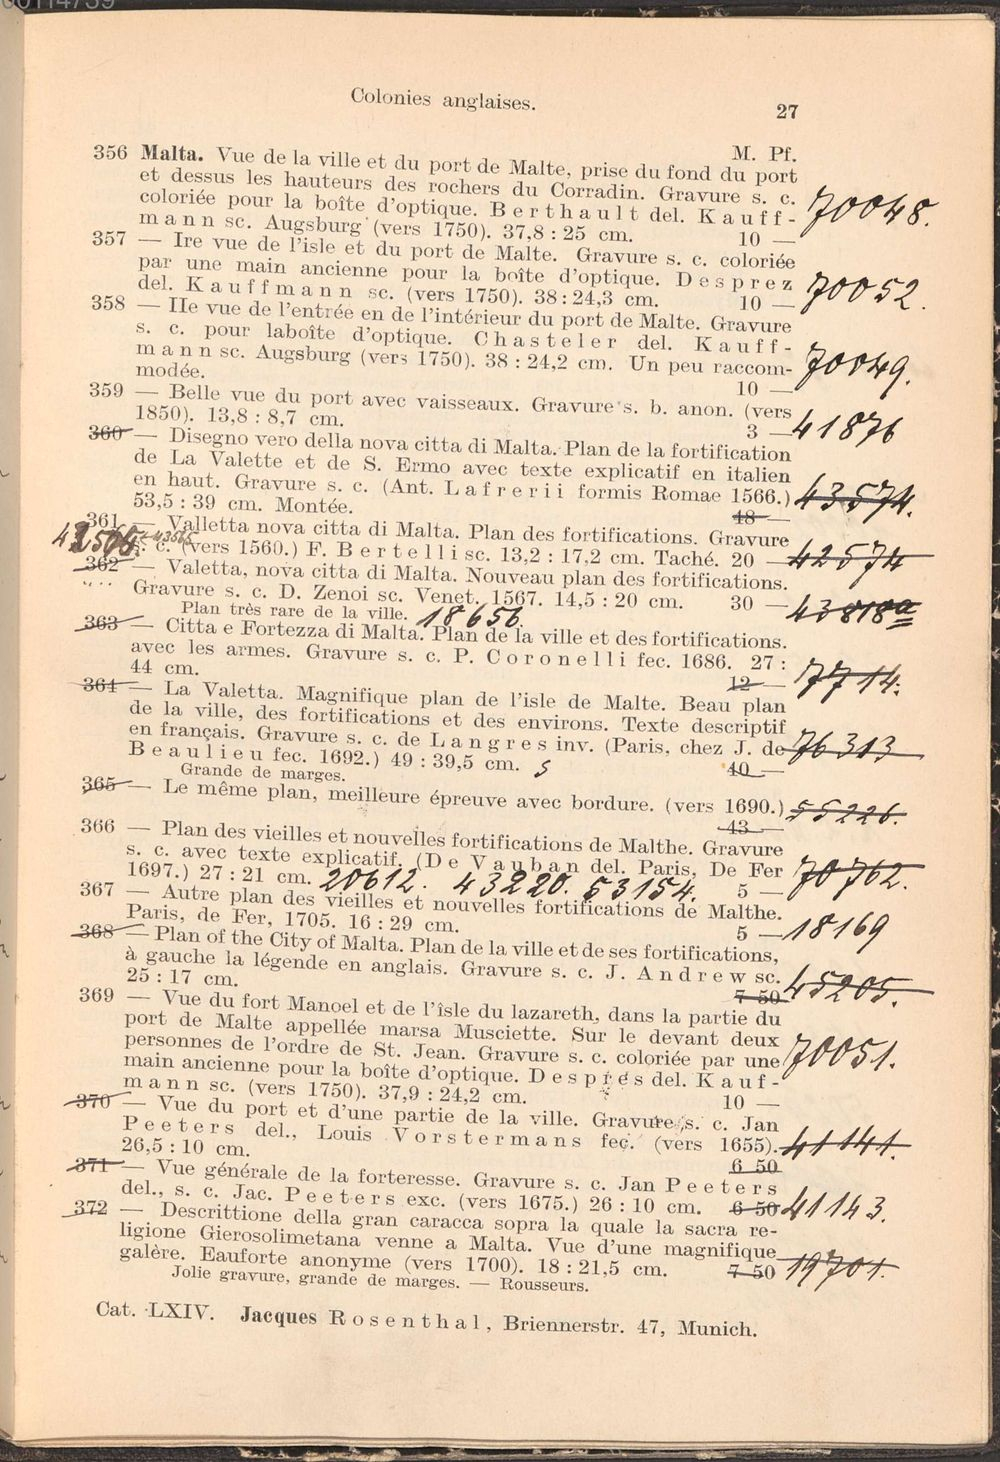 Colonies anglaises.
27
M. Pf.
356 Malta. Vue de la ville et du port de Malte, prise du fond du port
et dessus les hauteurs des rochers du Corradin. Gravure s. c.
coloriée pour la boîte d'optique. Berthault del. Kauff-
mann sc. Augsburg (vers 1750). 37,8 : 25 cm. 10 — 70048.
357 — Ire vue de l'isle et du port de Malte. Gravure s. c. coloriée
par une main ancienne pour la boîte d'optique. Desprez
del. Kauffmann sc. (vers 1750). 38 : 24,3 cm. 10 — 70052.
358 — IIe vue de l'entrée en de l'intérieur du port de Malte. Gravure
s. c. pour laboîte d'optique. Chasteler del. Kauff-
mann sc. Augsburg (vers 1750). 38 : 24,2 cm. Un peu raccom- 70049.
modée. 10 —
359 — Belle vue du port avec vaisseaux. Gravure s. b. anon. (vers
1850). 13,8 : 8,7 cm. 3 — 41876
360 — Disegno vero della nova citta di Malta. Plan de la fortification
de La Valette et de S. Ermo avec texte explicatif en italien
en haut. Gravure s. c. (Ant. Lafrerii formis Romae 1566.) 43574.
53,5 : 39 cm. Montée. 48 —
361 — Valletta nova citta di Malta. Plan des fortifications. Gravure
s. c. (vers 1560.) F. Bertelli sc. 13,2 : 17,2 cm. Taché. 20 — 42574
362 — Valetta, nova citta di Malta. Nouveau plan des fortifications.
Gravure s. c. D. Zenoi sc. Venet. 1567. 14,5 : 20 cm. 30 — 43818a
Plan très rare de la ville. 18656.
363 — Citta e Fortezza di Malta. Plan de la ville et des fortifications.
avec les armes. Gravure s. c. P. Coronelli fec. 1686. 27 :
44 cm. 12 — 7714.
364 — La Valetta. Magnifique plan de l'isle de Malte. Beau plan
de la ville, des fortifications et des environs. Texte descriptif
en français. Gravure s. c. de Langres inv. (Paris, chez J. de 76313
Beaulieu fec. 1692.) 49 : 39,5 cm. 40 —
Grande de marges.
365 — Le même plan, meilleure épreuve avec bordure. (vers 1690.) 55226.
43 —
366 — Plan des vieilles et nouvelles fortifications de Malthe. Gravure
s. c. avec texte explicatif. (De Vauban del. Paris, De Fer
1697.) 27 : 21 cm. 20612. 43220. 53154. 5 — 70762.
367 — Autre plan des vieilles et nouvelles fortifications de Malthe.
Paris, de Fer, 1705. 16 : 29 cm. 5 — 18169
368 — Plan of the City of Malta. Plan de la ville et de ses fortifications,
à gauche la légende en anglais. Gravure s. c. J. Andrew sc.
25 : 17 cm. 7 50 45205.
369 — Vue du fort Manoel et de l'îsle du lazareth, dans la partie du
port de Malte appellée marsa Musciette. Sur le devant deux
personnes de l'ordre de St. Jean. Gravure s. c. coloriée par une 70051.
main ancienne pour la boîte d'optique. Desprès del. Kauf-
mann sc. (vers 1750). 37,9 : 24,2 cm. 10 —
370 — Vue du port et d'une partie de la ville. Gravure s. c. Jan
Peeters del., Louis Vorstermans fec. (vers 1655). 41141.
26,5 : 10 cm. 6 50
371 — Vue générale de la forteresse. Gravure s. c. Jan Peeters
del., s. c. Jac. Peeters exc. (vers 1675.) 26 : 10 cm. 6 50 41143.
372 — Descrittione della gran caracca sopra la quale la sacra re-
ligione Gierosolimetana venne a Malta. Vue d'une magnifique
galère. Eauforte anonyme (vers 1700). 18 : 21,5 cm. 7 50 19701.
Jolie gravure, grande de marges. — Rousseurs.
Cat. LXIV. Jacques Rosenthal, Briennerstr. 47, Munich.